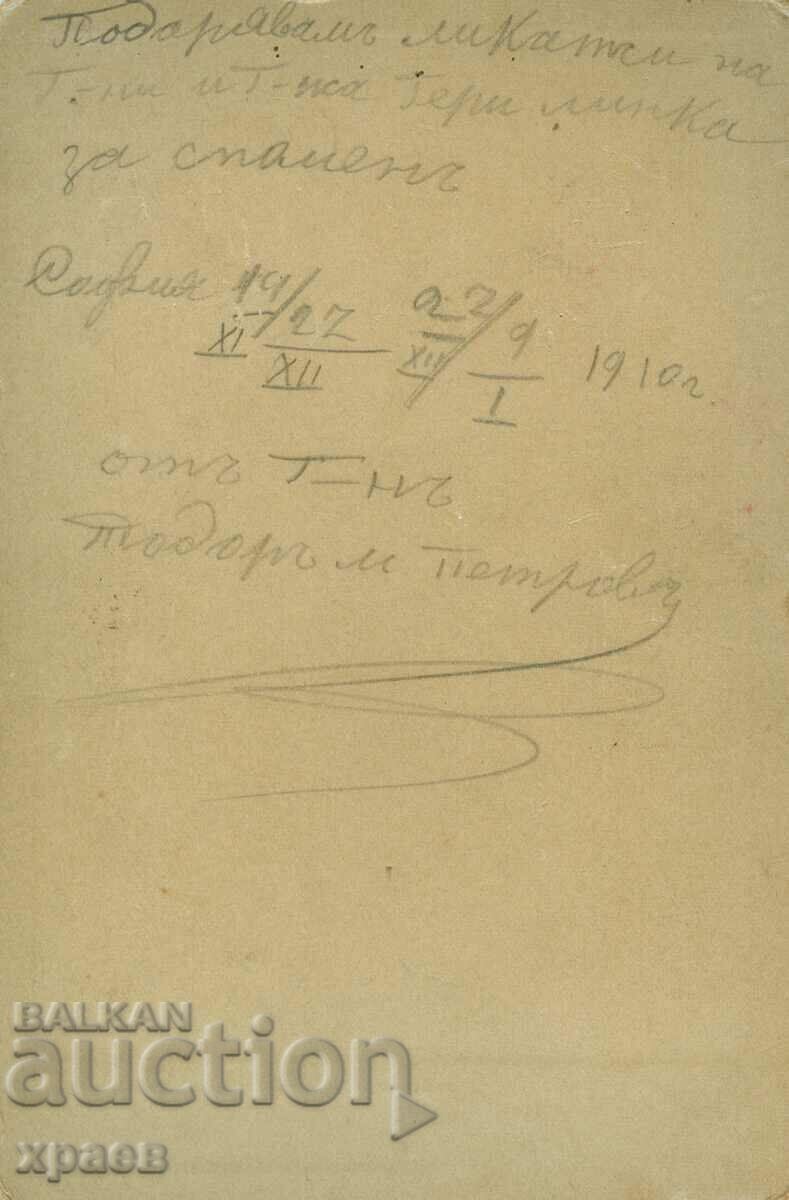 Подарявамъ ликътси на
Г-ни и Г-жа Гери линка
за споменъ
София 19/XI 27/XII 27/XII 9/I 1910 г.
отъ Г-нъ
Тодоръ М Петровъ
BALKAN
auction
храев